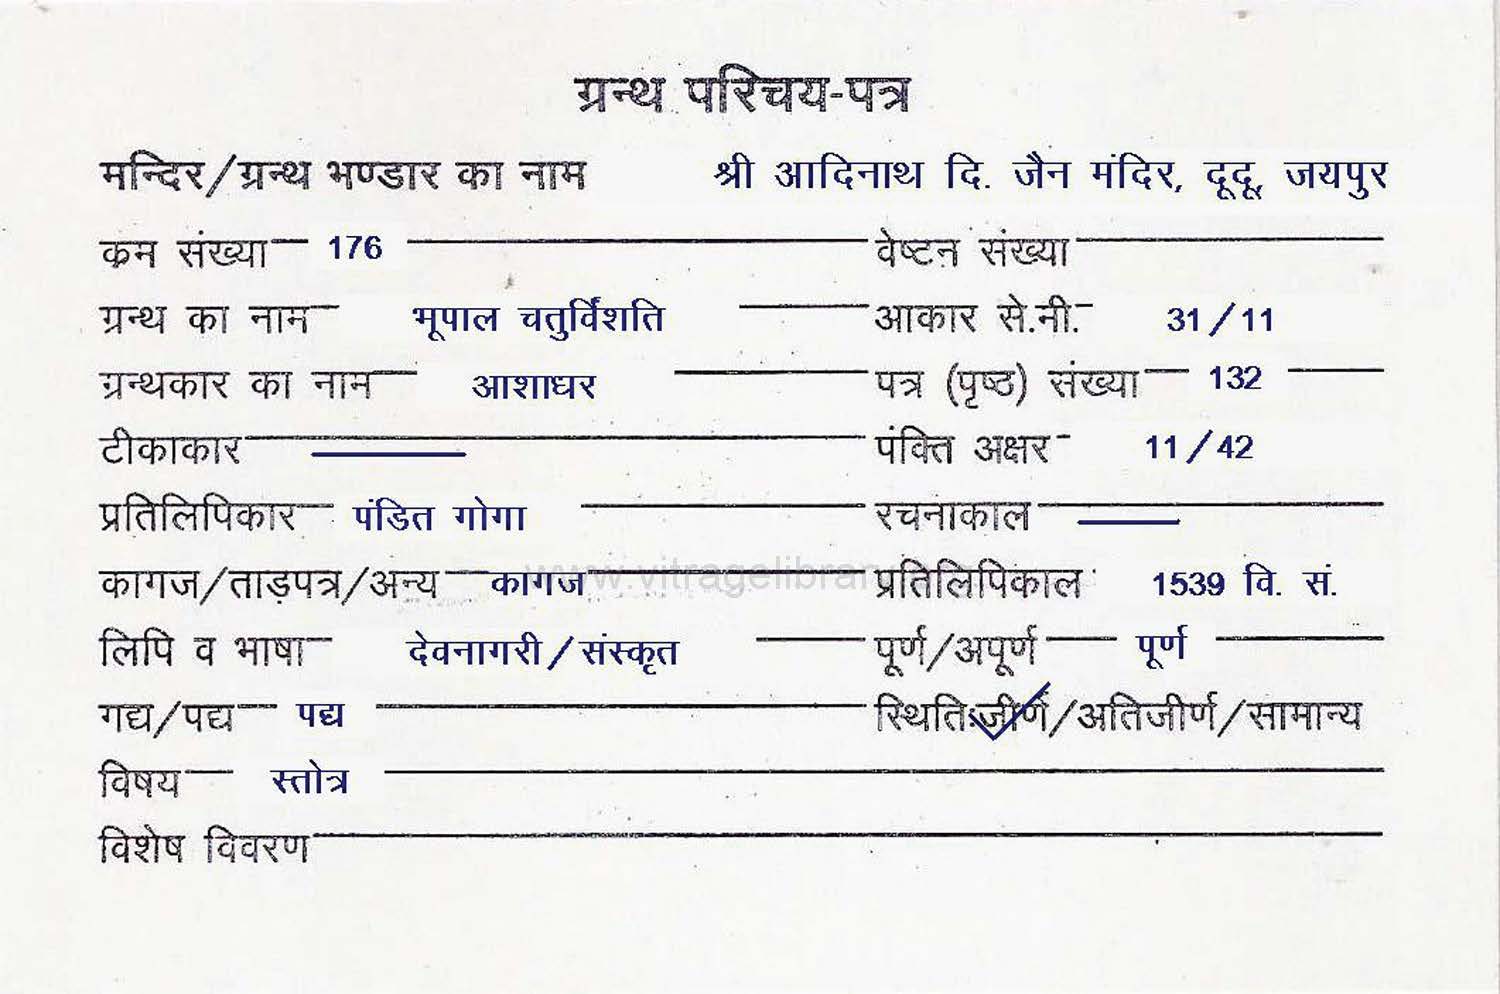 ग्रन्थ परिचय-पत्र
मन्दिर/ग्रन्थ भण्डार का नाम श्री आदिनाथ दि. जैन मंदिर, दूदू, जयपुर
क्रम संख्या 176 वेष्टन संख्या
ग्रन्थ का नाम भूपाल चतुर्विंशति आकार से.मी. 31/11
ग्रन्थकार का नाम आशाधर पत्र (पृष्ठ) संख्या 132
टीकाकार पंक्ति अक्षर 11/42
प्रतिलिपिकार पंडित गोगा रचनाकाल
कागज/ताड़पत्र/अन्य कागज प्रतिलिपिकाल 1539 वि. सं.
लिपि व भाषा देवनागरी/संस्कृत पूर्ण/अपूर्ण पूर्ण
गद्य/पद्य पद्य स्थितिः जीर्ण/अतिजीर्ण/सामान्य
विषय स्तोत्र
विशेष विवरण